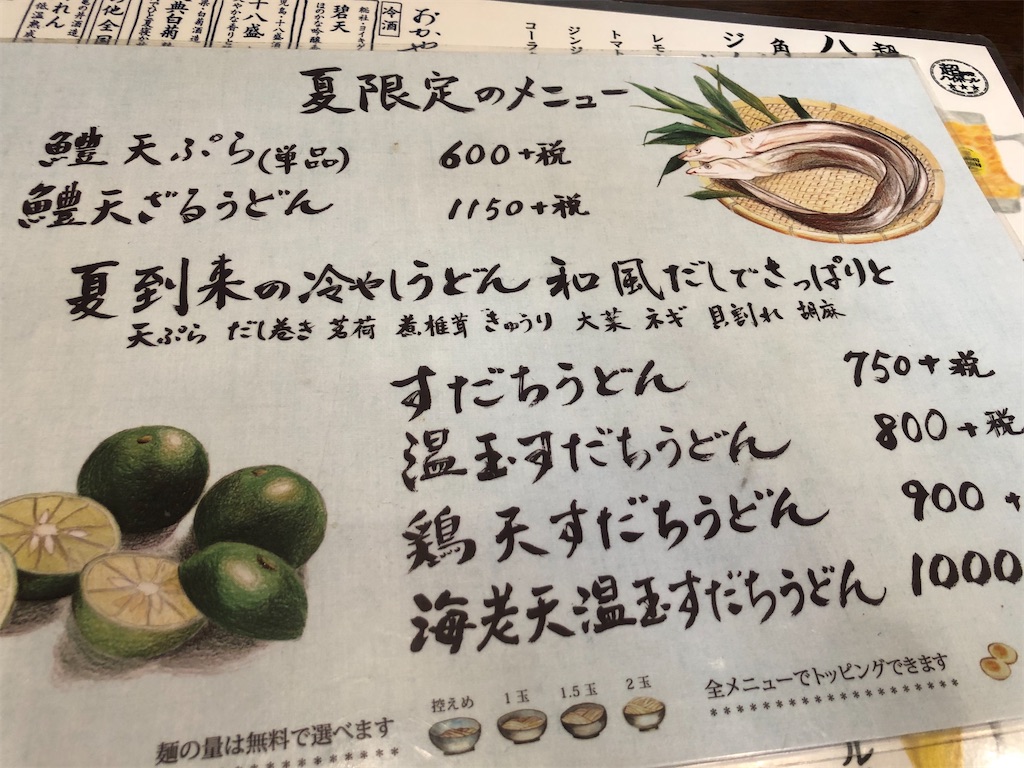 夏限定のメニュー
鱧天ぷら(単品) 600+税
鱧天ざるうどん 1150+税
夏到来の冷やしうどん 和風だしでさっぱりと
天ぷら だし巻き 茗荷 煮椎茸 きゅうり 大葉 ネギ 貝割れ 胡麻
すだちうどん 750+税
温玉すだちうどん 800+税
鶏天すだちうどん 900+
海老天温玉すだちうどん 1000
麺の量は無料で選べます
控えめ 1玉 1.5玉 2玉
全メニューでトッピングできます
冷酒
おかや
碧天
十八盛
コーラ
ジンジ
トマト
レモ